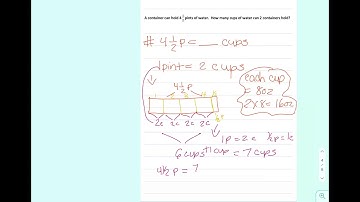 A container can hold 4 1/2 pints of water. How many cups of water can 2 containers hold?
# 4 1/2 p = __ cups
1 pint = 2 cups
4 1/2 p
each cup
= 8oz
2x8 = 16oz
2c 2c 2c 2c
1p = 2c 1/2 p = 1c
6 cups +1 cup = 7 cups
4 1/2 p = 7